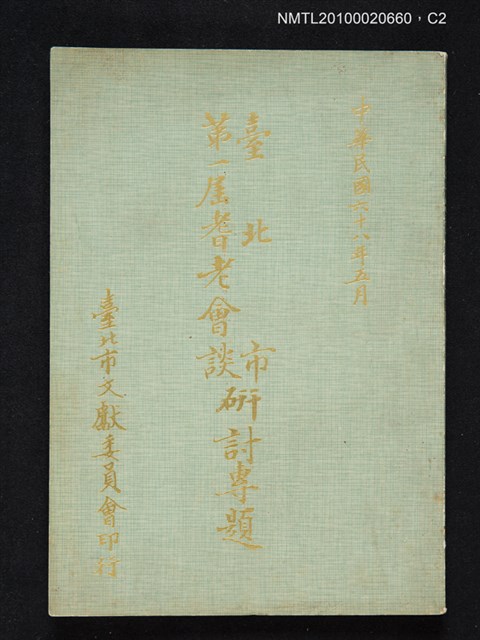 NMTL20100020660，C2
中華民國六十八年五月
臺北市
第一屆耆老會談
研討專題
臺北市文獻委員會印行